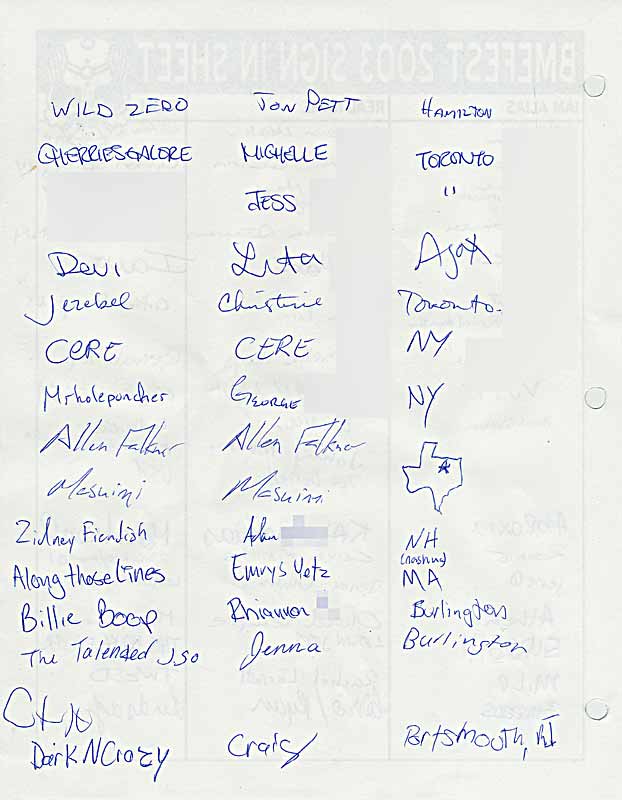 BMEFEST 2003 SIGN IN SHEET
IAM ALIAS
WILD ZERO JON PETT HAMILTON
CHERRIESGALORE MICHELLE TORONTO
JESS "
Devi Ajax
Jezebel Christine Toronto.
CERE CERE NY
Mrholepuncher GEORGE NY
Allen Falkner Allen Falkner
Masuimi Masuimi
Zidney Fiendish Adam NH
(nashua)
Along those Lines Emrys Yetz MA
Billie Boop Rhiannon Burlington
The Talended J.so Jenna Burlington
DarkNCrazy Craig Portsmouth, RI